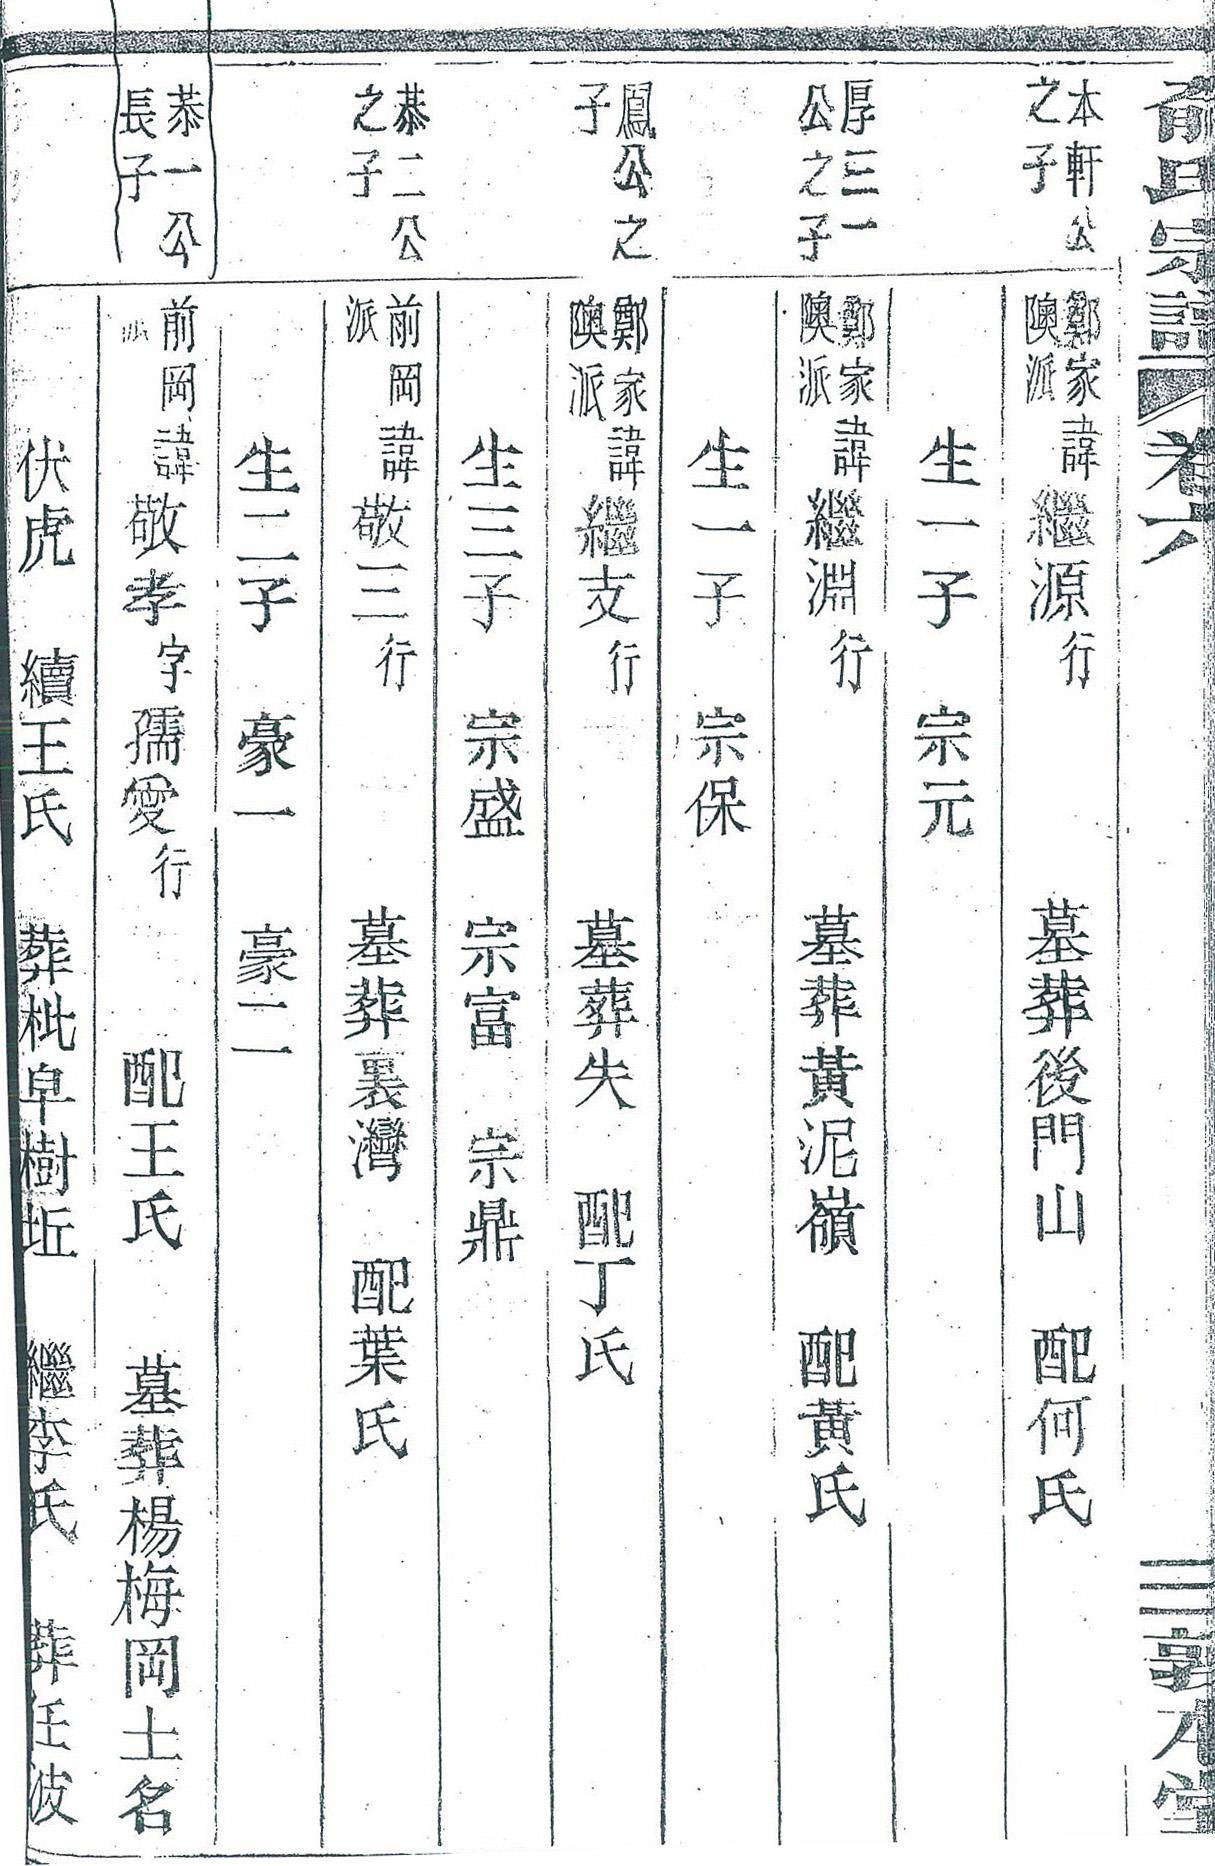 俞氏宗譜 卷六 三 敦本堂
本軒公之子
鄭家隩派 諱繼源行 墓葬後門山 配何氏
生一子 宗元
厚三一公之子
鄭家隩派 諱繼淵行 墓葬黃泥嶺 配黃氏
生一子 宗保
鳳公之子
鄭家隩派 諱繼支行 墓葬失 配丁氏
生三子 宗盛 宗富 宗鼎
恭二公之子
前岡派 諱敬三行 墓葬裏灣 配葉氏
生二子 豪一 豪二
恭一公長子
前岡派 諱敬孝字孺愛行 配王氏 墓葬楊梅岡土名
伏虎 續王氏 葬枇皁樹坵 繼李氏 葬任波